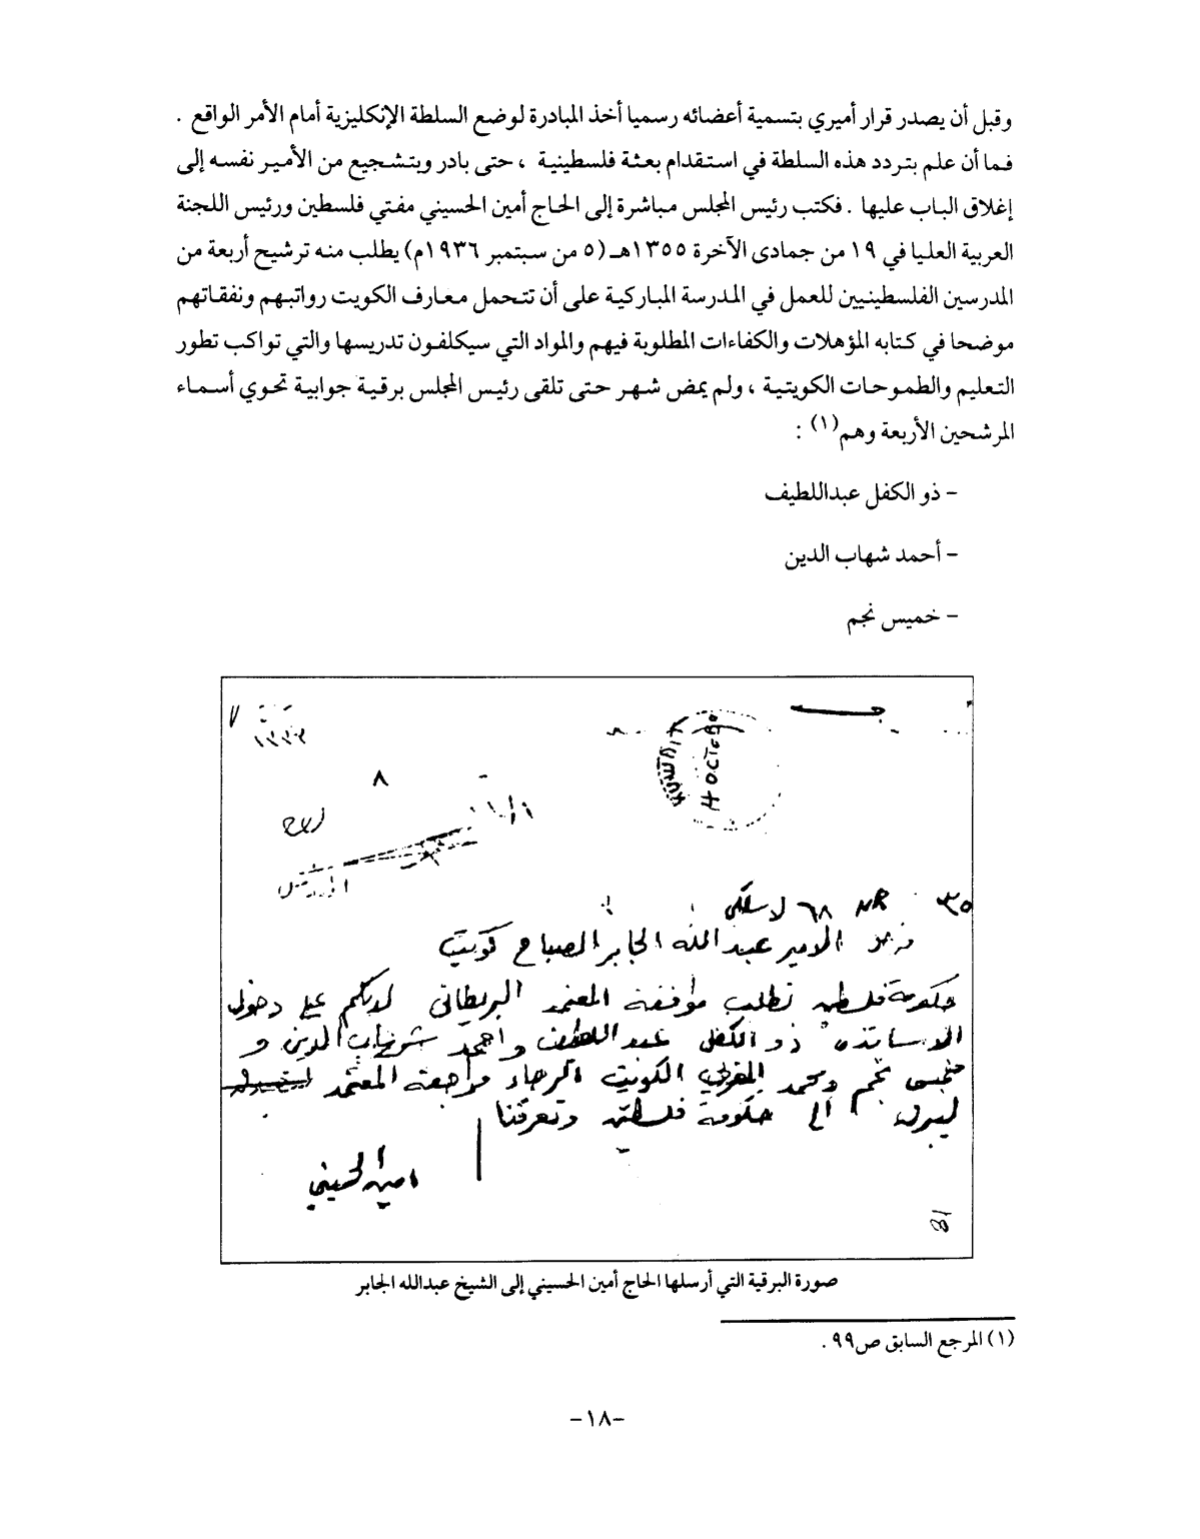 وقبل أن يصدر قرار أميري بتسمية أعضائه رسميا أخذ المبادرة لوضع السلطة الإنكليزية أمام الأمر الواقع .
فما أن علم بتردد هذه السلطة في استقدام بعثة فلسطينية ، حتى بادر وبتشجيع من الأمير نفسه إلى
إغلاق الباب عليها . فكتب رئيس المجلس مباشرة إلى الحاج أمين الحسيني مفتي فلسطين ورئيس اللجنة
العربية العليا في ١٩ من جمادى الآخرة ١٣٥٥هـ (٥ من سبتمبر ١٩٣٦م) يطلب منه ترشيح أربعة من
المدرسين الفلسطينيين للعمل في المدرسة المباركية على أن تتحمل معارف الكويت رواتبهم ونفقاتهم
موضحا في كتابه المؤهلات والكفاءات المطلوبة فيهم والمواد التي سيكلفون تدريسها والتي تواكب تطور
التعليم والطموحات الكويتية ، ولم يمض شهر حتى تلقى رئيس المجلس برقية جوابية تحوي أسماء
المرشحين الأربعة وهم(١) :
– ذو الكفل عبداللطيف
– أحمد شهاب الدين
– خميس نجم
٨
NR ٦٨ لاسلكي
الامير عبد الله الجابر الصباح كويت
حكومة فلسطين تطلب موافقة المعتمد البريطاني لديكم على دخول
الاساتذه ذو الكفل عبد اللطيف و احمد شهاب الدين و
خميس نجم ومحمد المغربي الكويت الرجاء مراجعة المعتمد
ليبرق الى حكومة فلسطين وتعرفنا
امين الحسيني
81
صورة البرقية التي أرسلها الحاج أمين الحسيني إلى الشيخ عبدالله الجابر
(١) المرجع السابق ص٩٩ .
–١٨–